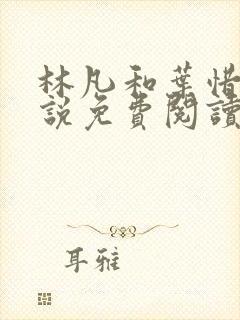 林凡和葉惜
説免費閱讀
耳雅